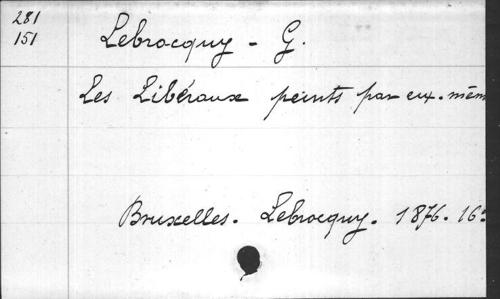 281
151
Lebrocquy - G.
Les Libéraux peints par eux-mêm
Bruxelles. Lebrocquy. 1876. 16°